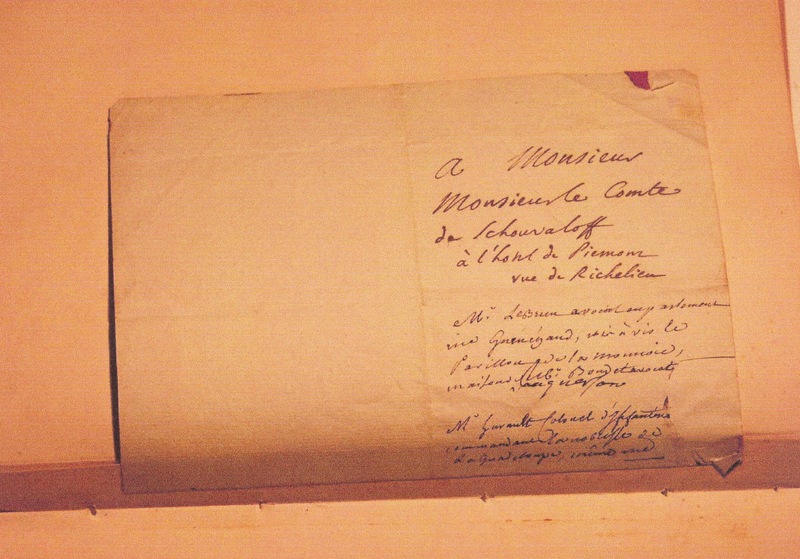 A Monsieur
Monsieur le Comte
de Schouvaloff
à l'hotel de Piemont
rue de Richelieu
Mr. LeBrun avocat au parlement
rue Guénégaud, vis à vis le
Pavillon de la monnoie,
maison de Mr. Boudet avocat
Mr Gurault Colonel d'Infanterie
commandant la noblesse de
La Guadeloupe, même rue